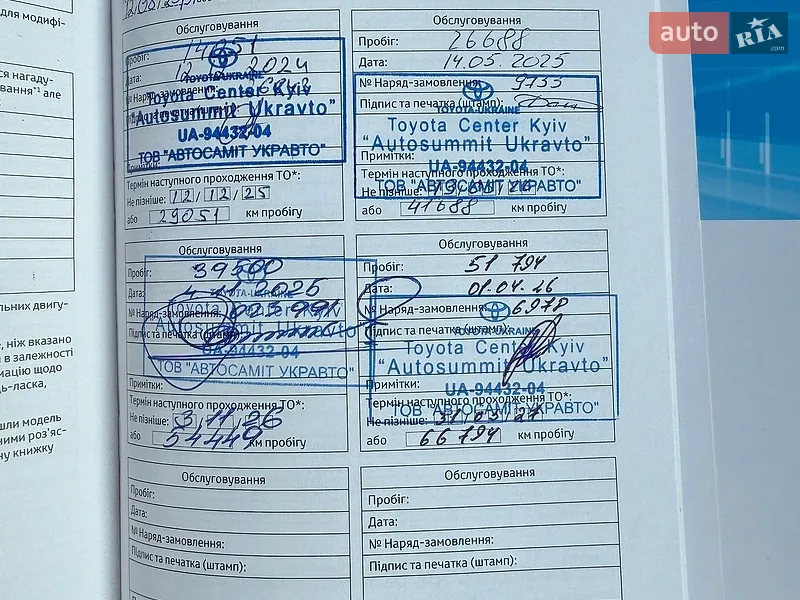 для модифі-
ся нагаду-
ування"¹ але
льних двигу-
, ніж вказано
в залежності
мацію щодо
дь-ласка,
шли модель
ними роз'яс-
ну книжку
Обслуговування
Пробіг:
Дата: 2024
№ Наряд-замовлення:
TOYOTA-UKRAINE
Toyota Center Kyiv
"Autosummit Ukravto"
UA-94432-04
ТОВ "АВТОСАМІТ УКРАВТО"
Примітки:
Термін наступного проходження ТО*:
Не пізніше: 12/12/25
або 29051 км пробігу
Обслуговування
Пробіг: 26688
Дата: 14.05.2025
№ Наряд-замовлення: 9755
Підпис та печатка (штамп):
TOYOTA-UKRAINE
Toyota Center Kyiv
"Autosummit Ukravto"
Примітки:
UA-94432-04
Термін наступного проходження ТО*:
ТОВ "АВТОСАМІТ УКРАВТО"
Не пізніше:
або 41688 км пробігу
Обслуговування
Пробіг: 39500
Дата: 2025
№ Наряд-замовлення:
Підпис та печатка (штамп):
TOYOTA-UKRAINE
Toyota Center Kyiv
"Autosummit Ukravto"
UA-94432-04
ТОВ "АВТОСАМІТ УКРАВТО"
Примітки:
Термін наступного проходження ТО*:
Не пізніше: 3/11/26
або 54449 км пробігу
Обслуговування
Пробіг: 51 794
Дата: 01.04.26
№ Наряд-замовлення: 6978
Підпис та печатка (штамп):
TOYOTA-UKRAINE
Toyota Center Kyiv
"Autosummit Ukravto"
Примітки:
UA-94432-04
Термін наступного проходження ТО*:
ТОВ "АВТОСАМІТ УКРАВТО"
Не пізніше: 31/03/27
або 66 794 км пробігу
Обслуговування
Пробіг:
Дата:
№ Наряд-замовлення:
Підпис та печатка (штамп):
Обслуговування
Пробіг:
Дата:
№ Наряд-замовлення:
Підпис та печатка (штамп):
auto RIA.com